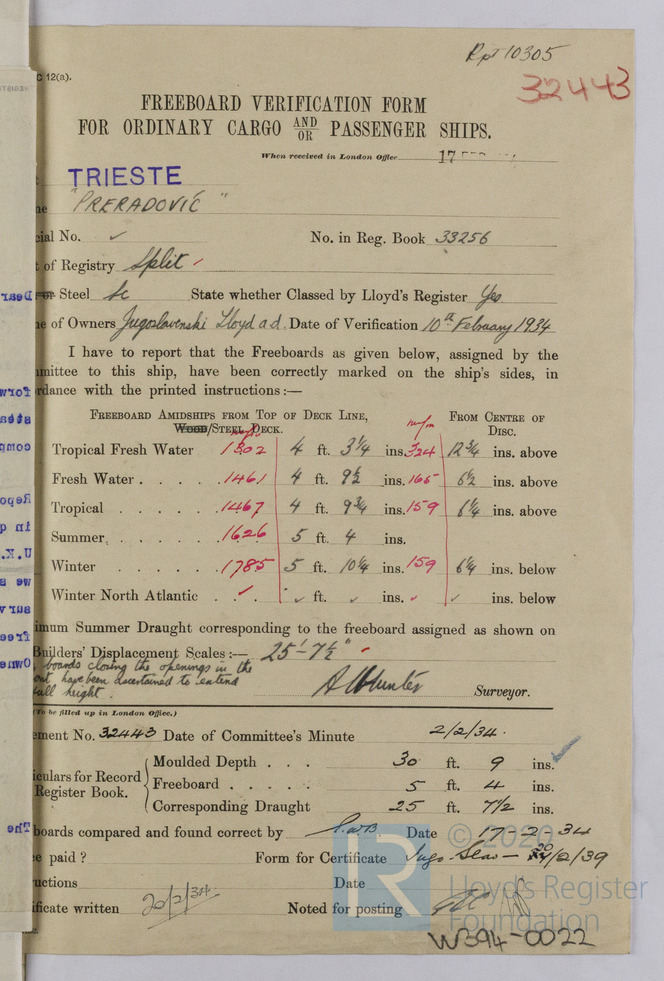 Rpt 10305
C 12(a).
32443
FREEBOARD VERIFICATION FORM
FOR ORDINARY CARGO AND/OR PASSENGER SHIPS.
When received in London Office 17
TRIESTE
"PRERADOVIĆ"
cial No. ✓ No. in Reg. Book 33256
t of Registry Split
or Steel Sc State whether Classed by Lloyd's Register Yes
e of Owners Jugoslavenski Lloyd a.d. Date of Verification 10th February 1934
I have to report that the Freeboards as given below, assigned by the
mmittee to this ship, have been correctly marked on the ship's sides, in
rdance with the printed instructions:—
FREEBOARD AMIDSHIPS FROM TOP OF DECK LINE, WOOD/STEEL DECK. m/m m/m FROM CENTRE OF DISC.
Tropical Fresh Water 1302 4 ft. 3 1/4 ins. 324 12 3/4 ins. above
Fresh Water 1461 4 ft. 9 1/2 ins. 165 6 1/2 ins. above
Tropical 1467 4 ft. 9 3/4 ins. 159 6 1/4 ins. above
Summer 1626 5 ft. 4 ins.
Winter 1785 5 ft. 10 1/4 ins. 159 6 1/4 ins. below
Winter North Atlantic ✓ ✓ ft. ✓ ins. ✓ ✓ ins. below
imum Summer Draught corresponding to the freeboard assigned as shown on
Builders' Displacement Scales:— 25'-7 1/2"
boards closing the openings in the
have been ascertained to extend
full height.
A W Hunter Surveyor.
(To be filled up in London Office.)
ement No. 32443 Date of Committee's Minute 2/2/34.
iculars for Record Register Book.
Moulded Depth . . . 30 ft. 9 ins.
Freeboard . . . . . 5 ft. 4 ins.
Corresponding Draught 25 ft. 7 1/2 ins.
boards compared and found correct by Date 17-2-34
e paid ? Form for Certificate Jugo Slav — /2/39
uctions Date
ificate written 20/2/34 Noted for posting
© 2020
Lloyd's Register
Foundation
W394-0022